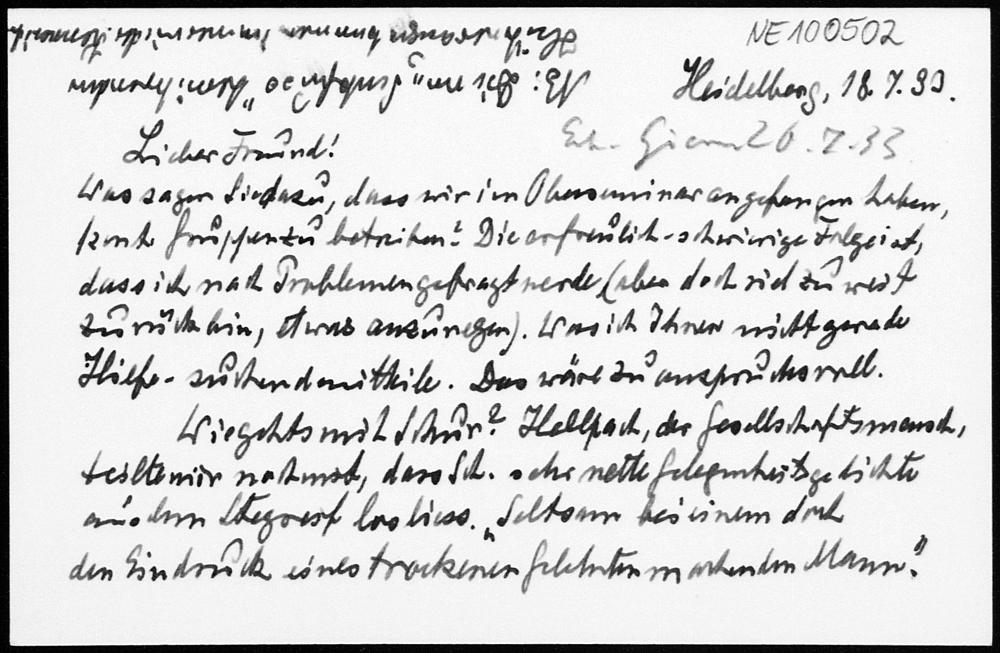 NE100502
Heidelberg, 18.7.33.
26.7.33
Lieber Freund!
Was sagen Sie dazu, dass wir im Oberseminar angefangen haben,
kont. Gruppen zu betreiben? Die erfreulich-schwierige Folge ist,
dass ich nach Problemen gefragt werde (aber doch viel zu weit
zurück bin, etwas anzuregen). Was ich Ihnen nicht gerade
Hilfe-suchend mitteile. Das wäre zu anspruchsvoll.
Wie gehts mit Schur? Hellpach, der Gesellschaftsmensch,
teilte mir noch mit, dass Sch. sehr nette Gelegenheitsgedichte
aus dem Stegreif losliess. „Seltsam bei einem doch
den Eindruck eines trockenen Gelehrten machenden Mann."
NB: